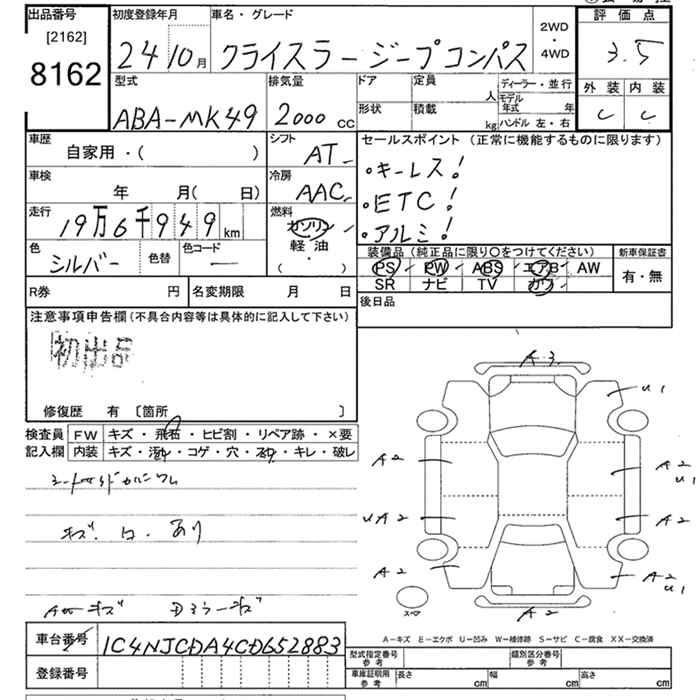 出品番号
[2162]
8162
初度登録年月
24 10月
車名・グレード
クライスラージープコンパス
2WD
・
4WD
評価点
3.5
型式
ABA-MK49
排気量
2000 cc
ドア
定員
人
形状
積載
kg
ディーラー・並行
モデル
年式 年
ハンドル 左・右
外装 内装
C C
車歴
自家用・( )
シフト
AT
車検
年 月( 日)
冷房
AAC
走行
19万6千949 km
燃料
ガソリン
軽油
・
( )
色
シルバー
色替
色コード
セールスポイント (正常に機能するものに限ります)
・キーレス!
・ETC!
・アルミ!
装備品 (純正品に限り〇をつけてください)
新車保証書
PS PW ABS エアB AW
SR ナビ TV カワ
有・無
R券 円
名変期限 月 日
後日品
注意事項申告欄 (不具合内容等は具体的に記入して下さい)
初出品
修復歴 有 〔箇所 〕
検査員
記入欄
FW キズ・飛石・ヒビ割・リペア跡・×要
内装 キズ・汚れ・コゲ・穴・スレ・キレ・破レ
キズ. 凹. あり
A-3
U1
A2
A2
U1
UA2
A2
A2
A2
U1
A2
スペア
A-キズ E-エクボ U-凹み W-補修跡 S-サビ C-腐食 XX-交換済
車台番号
1C4NJCDA4CD652883
登録番号
型式指定番号
参考
類別区分番号
参考
車庫証明用
参考
長さ cm
幅 cm
高さ cm